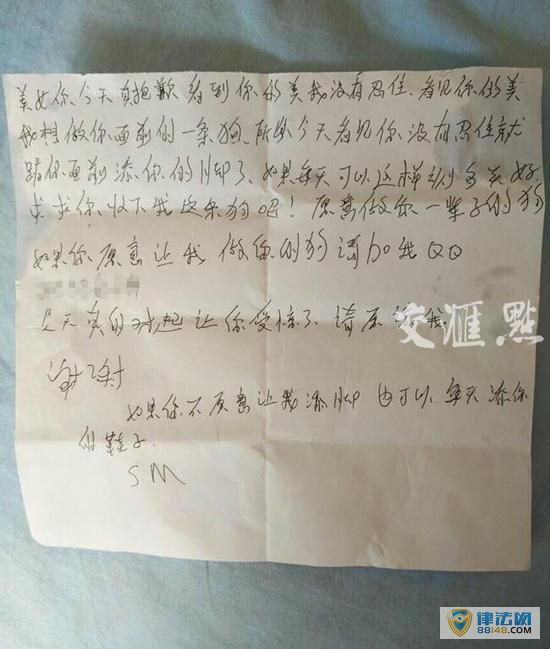 美女你今天真抱歉看到你的美我没有忍住、看见你的美
我想做你面前的一条狗、所以今天看见你没有忍住就
跪你面前添你的脚了、如果每天可以这样该多美好
求求你收下我这条狗吧！愿意做你一辈子的狗
如果你愿意让我做你的狗请加我QQ
今天真的对起让你受惊了请原谅我
谢谢
如果你不愿意让我添脚也可以每天添你
的鞋子.
SM
交汇點
律法网
88148.COM